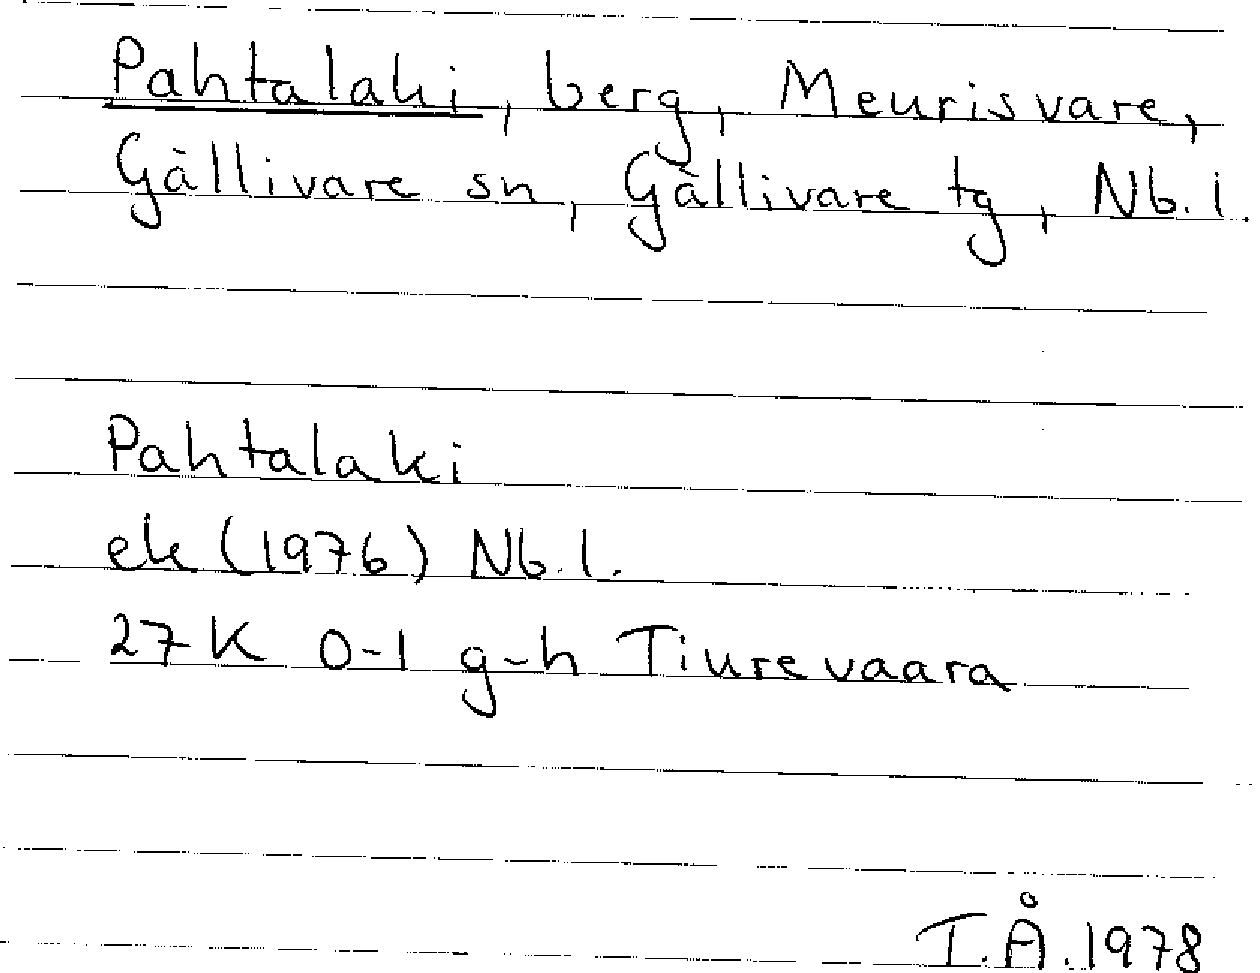 Pahtalaki, berg, Meurisvare,
Gällivare sn, Gällivare tg, Nb. l.
Pahtalaki
ek (1976) Nb. l.
27 K 0-1 g-h Tiurevaara
T.Å. 1978